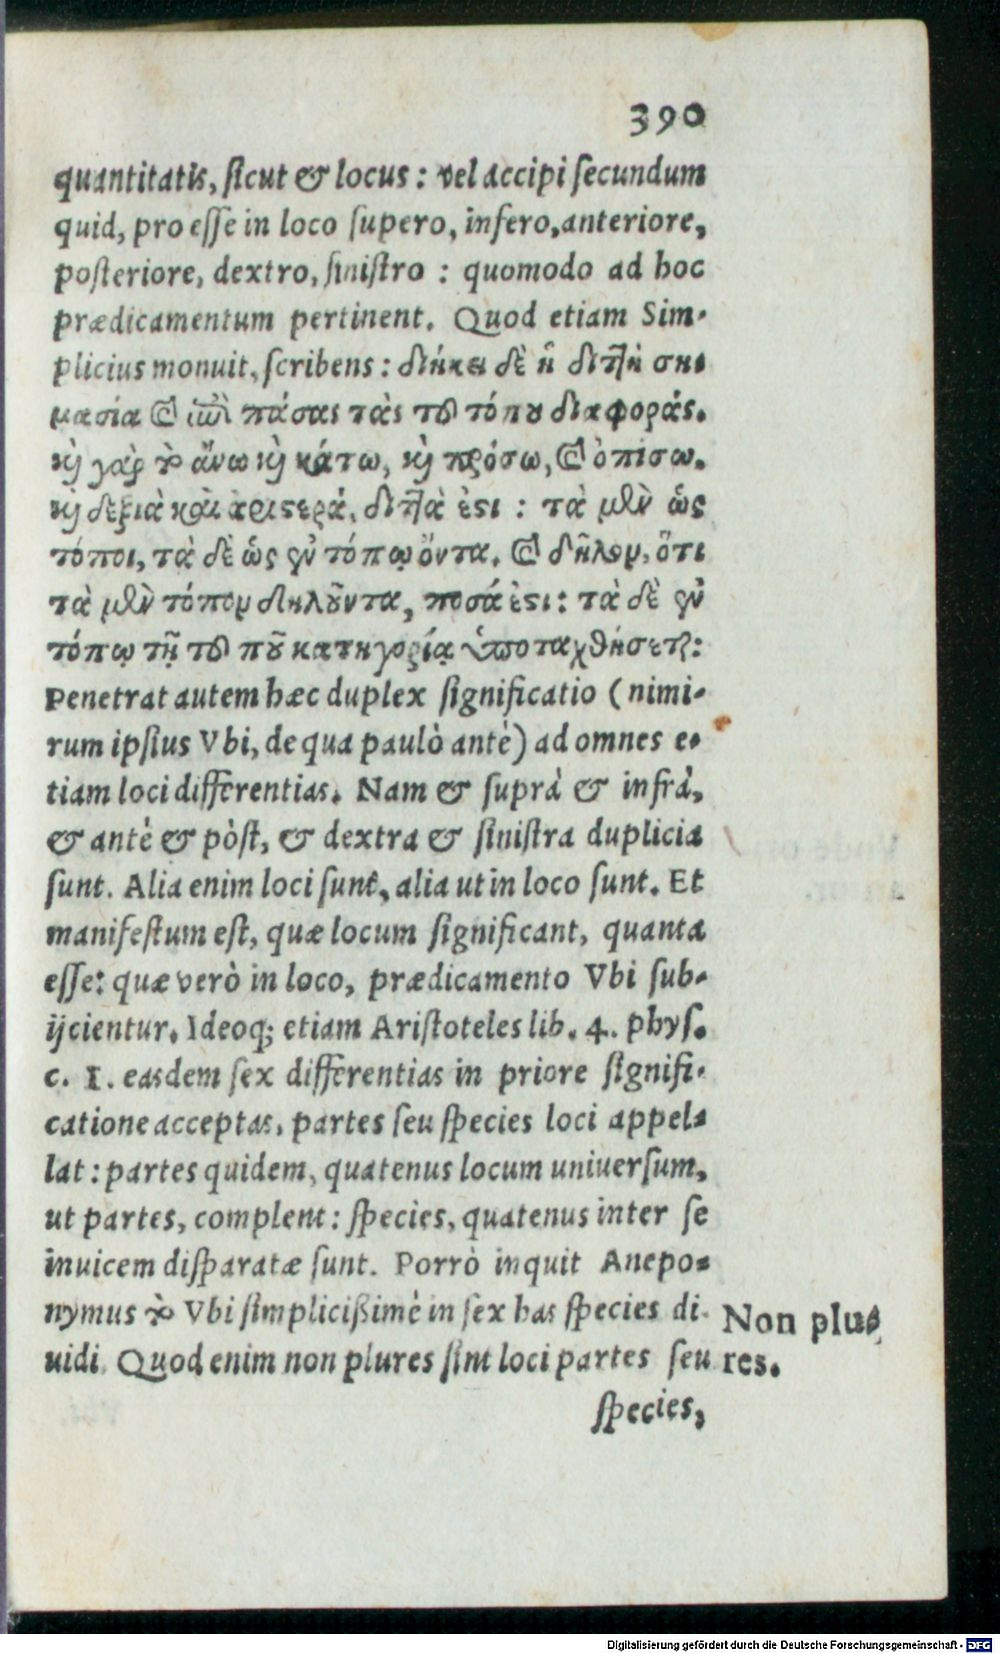 390
quantitatis, sicut & locus : vel accipi secundum
quid, pro esse in loco supero, infero, anteriore,
posteriore, dextro, sinistro : quomodo ad hoc
prædicamentum pertinent. Quod etiam Sim-
plicius monuit, scribens : διήκει δὲ ἡ διπλῆ ση-
μασία καὶ ἐπὶ πάσας τὰς τοῦ τόπου διαφοράς.
καὶ γὰρ τὸ ἄνω καὶ κάτω, καὶ πρόσω, καὶ ὀπίσω.
καὶ δεξιὰ καὶ ἀριστερά, διπλᾶ ἐστι : τὰ μὲν ὡς
τόποι, τὰ δὲ ὡς ἐν τόπῳ ὄντα. καὶ δῆλον, ὅτι
τὰ μὲν τόπον δηλοῦντα, ποσά ἐστι: τὰ δὲ ἐν
τόπῳ τῇ τοῦ ποῦ κατηγορίᾳ ὑποταχθήσεται:
Penetrat autem hæc duplex significatio (nimi-
rum ipsius Vbi, de qua paulò antè) ad omnes e-
tiam loci differentias. Nam & suprà & infrà,
& antè & pòst, & dextra & sinistra duplicia
sunt. Alia enim loci sunt, alia ut in loco sunt. Et
manifestum est, quæ locum significant, quanta
esse: quæ verò in loco, prædicamento Vbi sub-
ijcientur. Ideoq; etiam Aristoteles lib. 4. phys.
c. 1. easdem sex differentias in priore signifi-
catione acceptas, partes seu species loci appel-
lat : partes quidem, quatenus locum uniuersum,
ut partes, complent : species, quatenus inter se
inuicem disparatæ sunt. Porrò inquit Anepo-
nymus τὸ Vbi simplicißimè in sex has species di-
uidi. Quod enim non plures sint loci partes seu
Non plu-
res.
species,
Digitalisierung gefördert durch die Deutsche Forschungsgemeinschaft - DFG